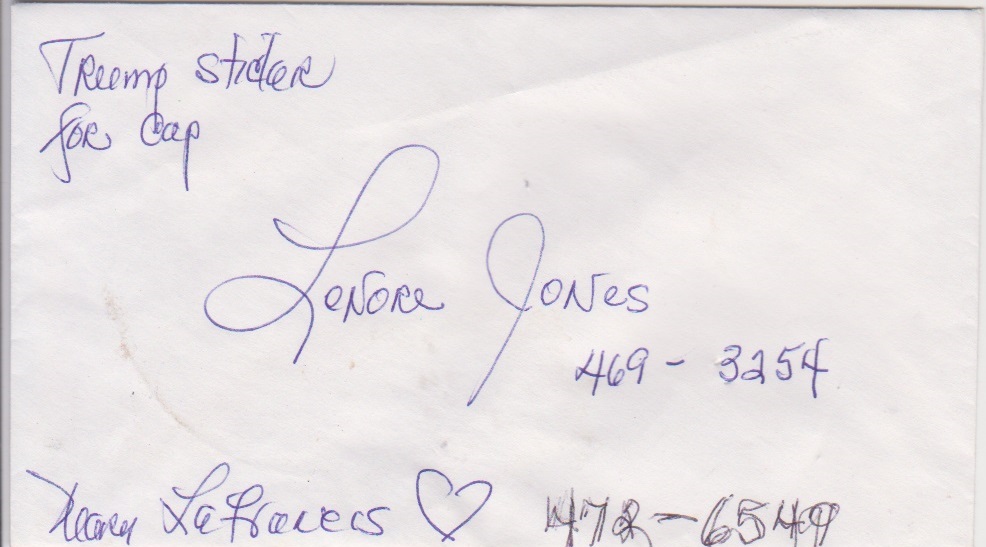 Trump sticker
for Cap
Lenore Jones
469 - 3254
LaFrancis ♡ 472-6549